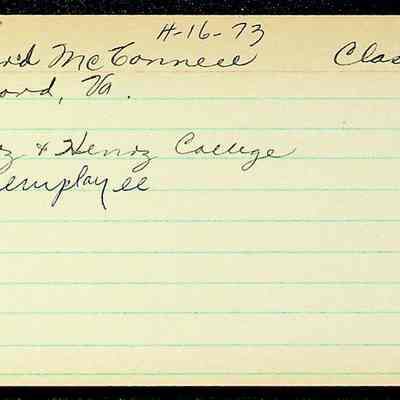 4-16-73
McConnell Clas
ord, Va.
& Henry College
employee